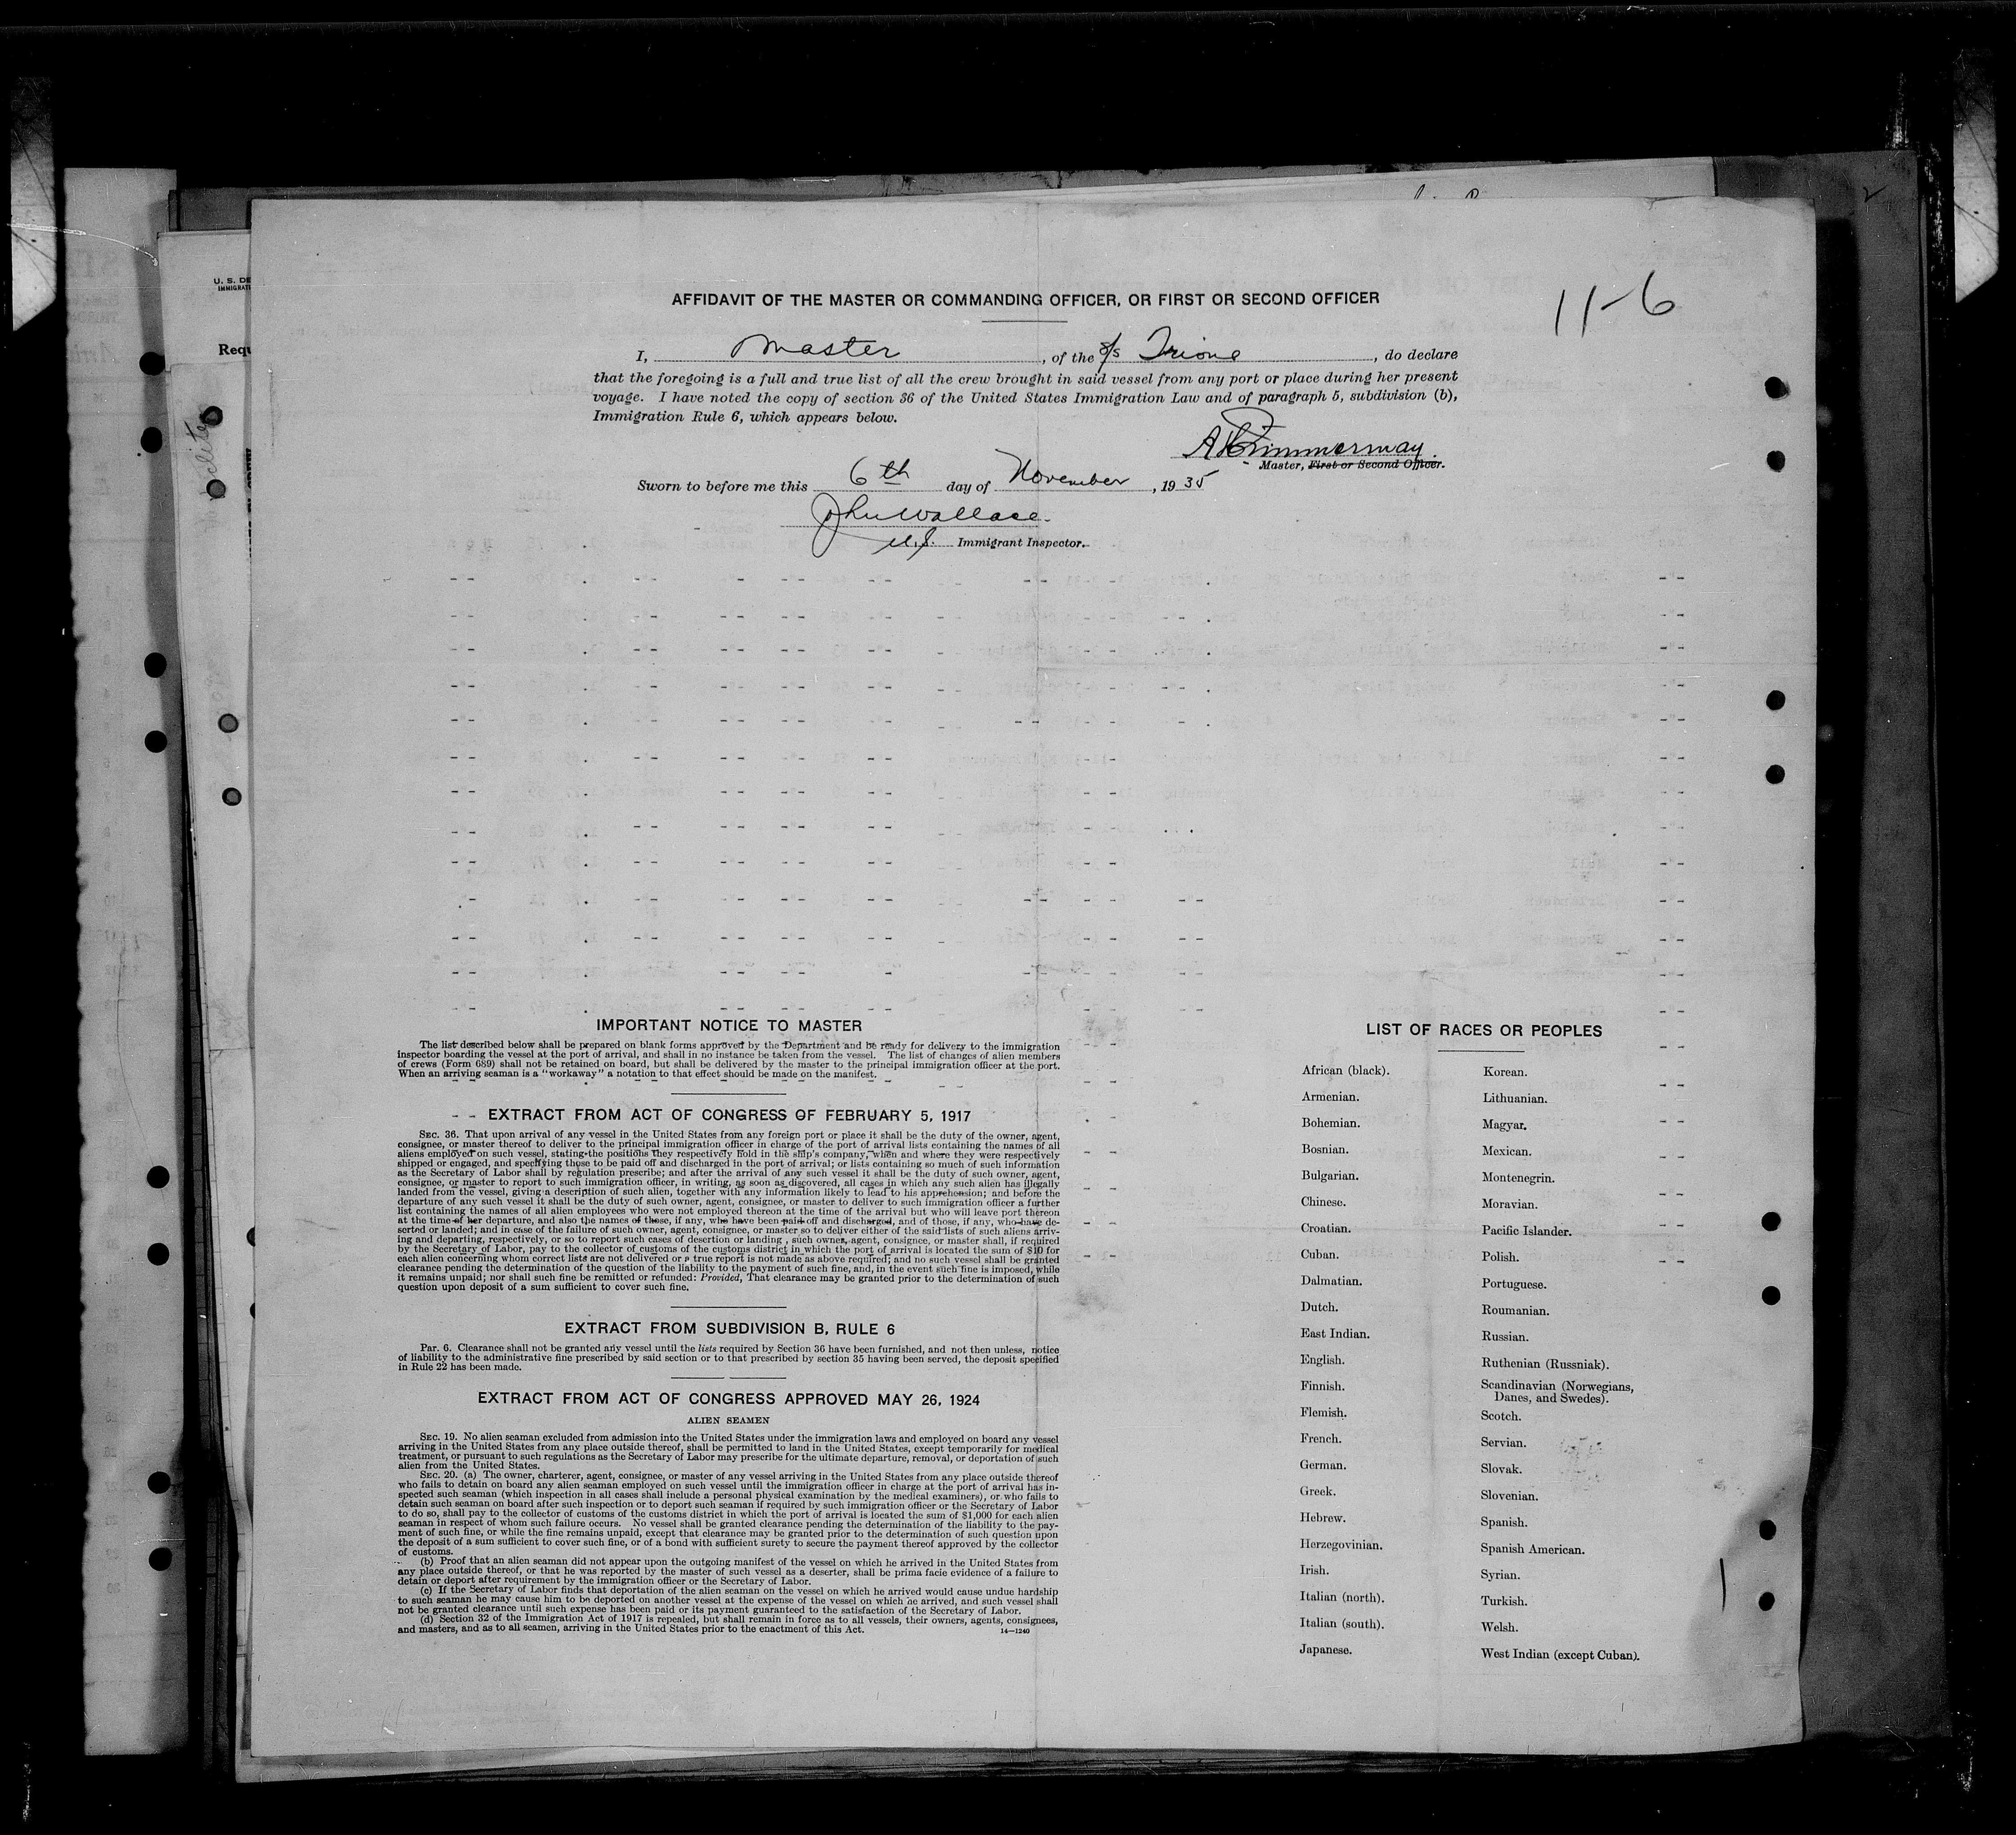 U. S. DE
IMMIGRATI
Requ
11-6
AFFIDAVIT OF THE MASTER OR COMMANDING OFFICER, OR FIRST OR SECOND OFFICER
I, Master, of the S/S Trione, do declare
that the foregoing is a full and true list of all the crew brought in said vessel from any port or place during her present
voyage. I have noted the copy of section 36 of the United States Immigration Law and of paragraph 5, subdivision (b),
Immigration Rule 6, which appears below.
Master, First or Second Officer.
Sworn to before me this 6th day of November, 1935
John Wallace
U.S. Immigrant Inspector.
IMPORTANT NOTICE TO MASTER
The list described below shall be prepared on blank forms approved by the Department and be ready for delivery to the immigration
inspector boarding the vessel at the port of arrival, and shall in no instance be taken from the vessel. The list of changes of alien members
of crews (Form 689) shall not be retained on board, but shall be delivered by the master to the principal immigration officer at the port.
When an arriving seaman is a "workaway" a notation to that effect should be made on the manifest.
EXTRACT FROM ACT OF CONGRESS OF FEBRUARY 5, 1917
SEC. 36. That upon arrival of any vessel in the United States from any foreign port or place it shall be the duty of the owner, agent,
consignee, or master thereof to deliver to the principal immigration officer in charge of the port of arrival lists containing the names of all
aliens employed on such vessel, stating the positions they respectively hold in the ship's company, when and where they were respectively
shipped or engaged, and specifying those to be paid off and discharged in the port of arrival; or lists containing so much of such information
as the Secretary of Labor shall by regulation prescribe; and after the arrival of any such vessel it shall be the duty of such owner, agent,
consignee, or master to report to such immigration officer, in writing, as soon as discovered, all cases in which any such alien has illegally
landed from the vessel, giving a description of such alien, together with any information likely to lead to his apprehension; and before the
departure of any such vessel it shall be the duty of such owner, agent, consignee, or master to deliver to such immigration officer a further
list containing the names of all alien employees who were not employed thereon at the time of the arrival but who will leave port thereon
at the time of her departure, and also the names of those, if any, who have been paid off and discharged, and of those, if any, who have de-
serted or landed; and in case of the failure of such owner, agent, consignee, or master so to deliver either of the said lists of such aliens arriv-
ing and departing, respectively, or so to report such cases of desertion or landing, such owner, agent, consignee, or master shall, if required
by the Secretary of Labor, pay to the collector of customs of the customs district in which the port of arrival is located the sum of $10 for
each alien concerning whom correct lists are not delivered or a true report is not made as above required; and no such vessel shall be granted
clearance pending the determination of the question of the liability to the payment of such fine, and, in the event such fine is imposed, while
it remains unpaid; nor shall such fine be remitted or refunded: Provided, That clearance may be granted prior to the determination of such
question upon deposit of a sum sufficient to cover such fine.
EXTRACT FROM SUBDIVISION B, RULE 6
Par. 6. Clearance shall not be granted any vessel until the lists required by Section 36 have been furnished, and not then unless, notice
of liability to the administrative fine prescribed by said section or to that prescribed by section 35 having been served, the deposit specified
in Rule 22 has been made.
EXTRACT FROM ACT OF CONGRESS APPROVED MAY 26, 1924
ALIEN SEAMEN
SEC. 19. No alien seaman excluded from admission into the United States under the immigration laws and employed on board any vessel
arriving in the United States from any place outside thereof, shall be permitted to land in the United States, except temporarily for medical
treatment, or pursuant to such regulations as the Secretary of Labor may prescribe for the ultimate departure, removal, or deportation of such
alien from the United States.
SEC. 20. (a) The owner, charterer, agent, consignee, or master of any vessel arriving in the United States from any place outside thereof
who fails to detain on board any alien seaman employed on such vessel until the immigration officer in charge at the port of arrival has in-
spected such seaman (which inspection in all cases shall include a personal physical examination by the medical examiners), or who fails to
detain such seaman on board after such inspection or to deport such seaman if required by such immigration officer or the Secretary of Labor
to do so, shall pay to the collector of customs of the customs district in which the port of arrival is located the sum of $1,000 for each alien
seaman in respect of whom such failure occurs. No vessel shall be granted clearance pending the determination of the liability to the pay-
ment of such fine, or while the fine remains unpaid, except that clearance may be granted prior to the determination of such question upon
the deposit of a sum sufficient to cover such fine, or of a bond with sufficient surety to secure the payment thereof approved by the collector
of customs.
(b) Proof that an alien seaman did not appear upon the outgoing manifest of the vessel on which he arrived in the United States from
any place outside thereof, or that he was reported by the master of such vessel as a deserter, shall be prima facie evidence of a failure to
detain or deport after requirement by the immigration officer or the Secretary of Labor.
(c) If the Secretary of Labor finds that deportation of the alien seaman on the vessel on which he arrived would cause undue hardship
to such seaman he may cause him to be deported on another vessel at the expense of the vessel on which he arrived, and such vessel shall
not be granted clearance until such expense has been paid or its payment guaranteed to the satisfaction of the Secretary of Labor.
(d) Section 32 of the Immigration Act of 1917 is repealed, but shall remain in force as to all vessels, their owners, agents, consignees,
and masters, and as to all seamen, arriving in the United States prior to the enactment of this Act.
14—1240
LIST OF RACES OR PEOPLES
African (black).
Armenian.
Bohemian.
Bosnian.
Bulgarian.
Chinese.
Croatian.
Cuban.
Dalmatian.
Dutch.
East Indian.
English.
Finnish.
Flemish.
French.
German.
Greek.
Hebrew.
Herzegovinian.
Irish.
Italian (north).
Italian (south).
Japanese.
Korean.
Lithuanian.
Magyar.
Mexican.
Montenegrin.
Moravian.
Pacific Islander.
Polish.
Portuguese.
Roumanian.
Russian.
Ruthenian (Russniak).
Scandinavian (Norwegians,
Danes, and Swedes).
Scotch.
Servian.
Slovak.
Slovenian.
Spanish.
Spanish American.
Syrian.
Turkish.
Welsh.
West Indian (except Cuban).